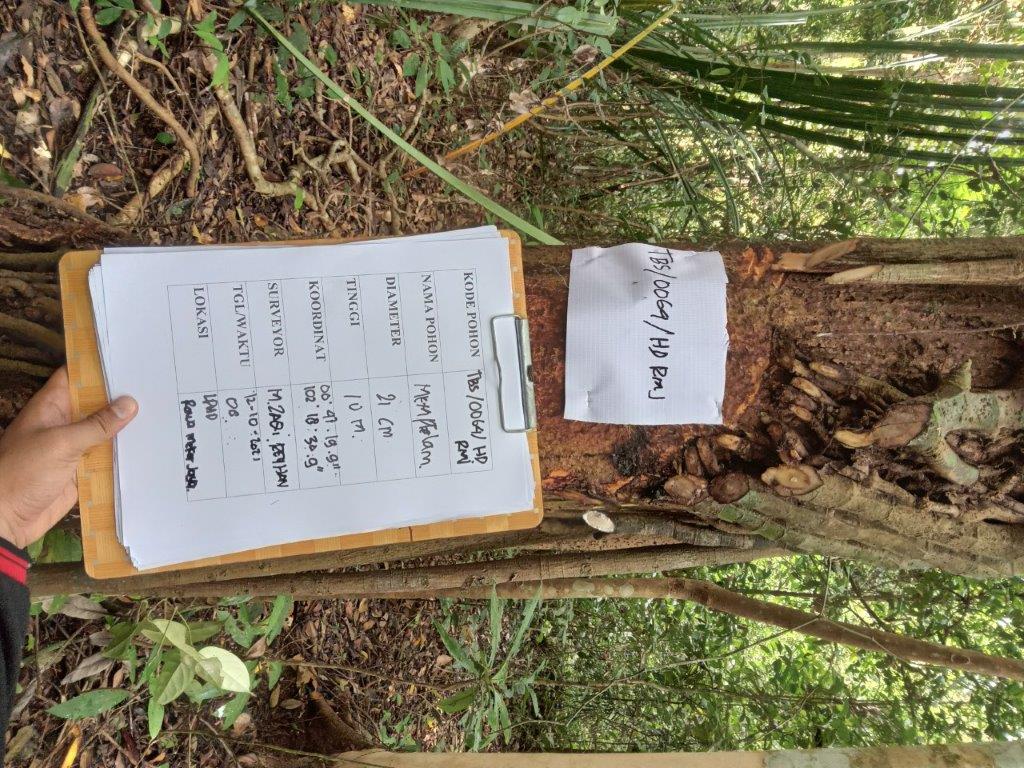 TBS/0064/HD RMJ
KODE POHON TBS/0064/HD
RMJ
NAMA POHON MEMPelam.
DIAMETER 21 CM
TINGGI 10 M.
KOORDINAT 00°.47.19.9"
102°.18.30.9"
SURVEYOR M.ZAQI REYHAN
TGL/WAKTU 12-10-2021
08
LOKASI LPHD
Rawa mekar Jaya.